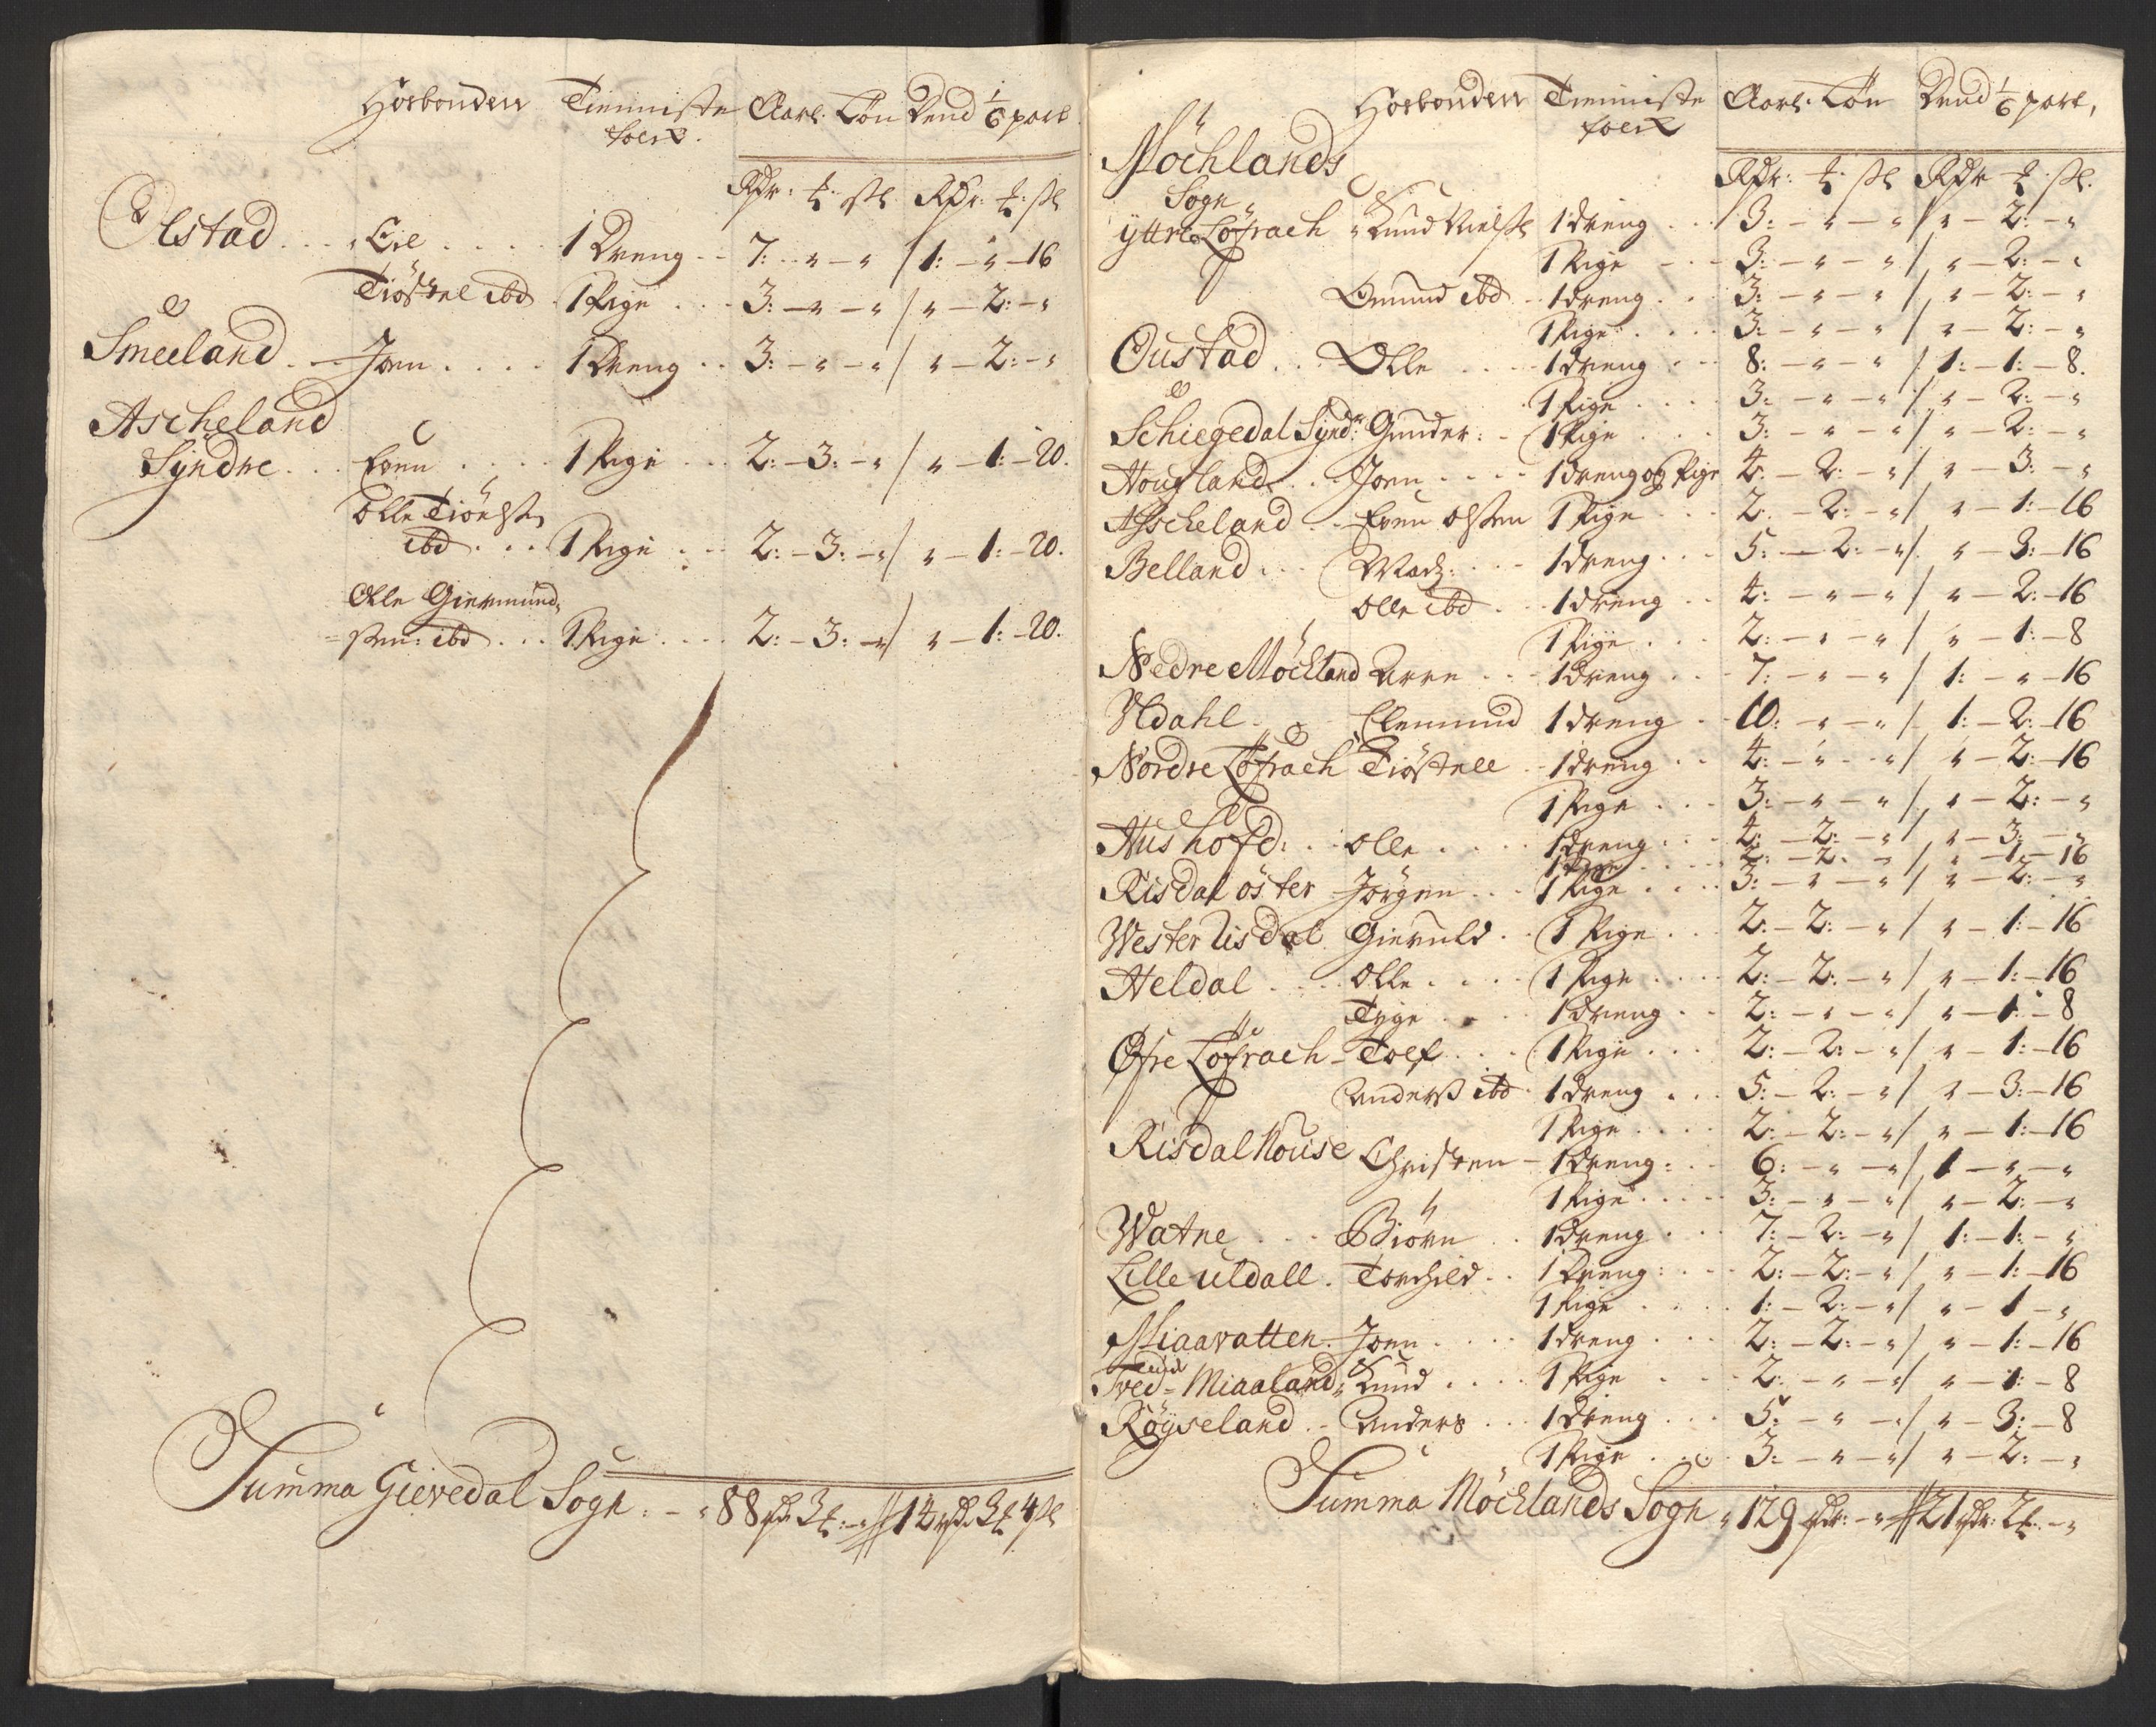 Hosbonden Tienniste Aarl. Løn Dend 1/6 part
folck.
Rdr: ℔: sl Rdr: ℔: sl
Olstad . . . Eil . . . . 1 Dreng . . 7: - " - " / 1: - " - 16
Tiöstel ibd . 1 Pige . . . 3: - " - " / " - 2: - "
Smeeland . - Joen . . . . 1 Dreng . . 3: - " - " / " - 2: - "
Ascheland
Syndre . . . Even . . . . 1 Pige . . . 2: - 3: - " / " - 1: - 20.
Olle Tiönss:
ibd . . . 1 Pige . . . 2: - 3: - " / " - 1: - 20.
Olle Giermund,
=sen: ibd . . . 1 Pige . . . 2: - 3: - " / " - 1: - 20.
Summa Gievedal Sogn . - " 88 rd 3 ℔: - " // 14 rd 3 ℔ 4 sl
Hosbonden Tienniste Aarl. Løn Dend 1/6 part,
folck
Möchlands
Sogn
Rdr: ℔: sl Rdr ℔: sl.
yttre Löfrach " Knud Nielss 1 dreng . . 3: - " - " / " - 2: - "
1 Pige - . . 3: - " - " / " - 2: - "
Omund ibd . . 1 dreng . . 3: - " - " / " - 2: - "
1 Pige . . . 3: - " - " / " - 2: - "
Oustad . . . Olle . . . . 1 dreng . . 8: - " - " / 1: - 1: - 8.
1 Pige . . . 3: - " - " / " - 2: - "
Schiegedal Synd: Gunder: . 1 Pige . . . 3: - " - " / " - 2: - "
Hougland . . . Joen . . . . 1 dreng og Pige 4: - 2: - " / " - 3: - "
Ascheland . . Even Olsen 1 Pige . . . 2: - 2: - " / " - 1: - 16
Belland . . . Madz . . . 1 dreng . . . 5: - 2: - " / " - 3: - 16
Olle ibd . . 1 dreng . . 4: - " - " / " - 2: - 16
1 Pige . . . 2: - " - " / " - 1: - 8
Nedre Möckland Aree . . . 1 dreng . . 7: - " - " / 1: - " - 16
Uldahl . Clemmend 1 dreng . . 10: - " - " / 1: - 2: - 16
Nordre Löfrach Tiöstell . . 1 dreng . . 4: - " - " / " - 2: - 16
1 Pige . . . 3: - " - " / " - 2: - "
Hushofd: . . Olle . . . . 1 dreng . . . 4: - 2: - " " - 3: - "
1 Pige . . . 2: - 2: - " " - 1: - 16
Risdal öster Jörgen . . . 1 Pige . . . . 3: - " - " / " - 2: - "
Wester Risdal Gieruld . . 1 Pige . . . 2: - 2: - " / " - 1: - 16
Heldal . . . . Olle . . . . 1 Pige . . . . 2: - 2: - " / " - 1: - 16
Tyge . . . . 1 dreng . . 2: - " - " / " - 1: - 8
Øfre Löfrach - Tolf . . . 1 Pige . . . 2: - 2: - " / " - 1: - 16
Anderss ibd . 1 dreng . . . 5: - 2: - " / " - 3: - 16
1 Pige . . . . 2: - 2: - " / " - 1: - 16
Risdal Nouse Christen - 1 dreng: . . 6: - " - " / 1 - " - "
1 Pige . . . . 3: - " - " / " - 2: - "
Watne . . . Biörn . . 1 dreng . . . 7: - 2: - " / 1: - 1: - "
Lille uldall . Torchild . . 1 Dreng: . . 2: - 2: - " / " - 1: - 16
1 Pige . . . . 1: - 2: - " / " - 1 - "
Miaavatten . Joen . . . . 1 dreng . . . 2: - 2: - " / " - 1: - 16
Tved = Miaaland " Knud . . . . 1 Pige . . . 2: - " - " / " - 1: - 8
Röyseland . - Anders . . . 1 dreng . . . 5: - " - " / " - 3: - 8
1 Pige . . . . 3: - " - " / " - 2: - "
Summa Möchlands Sogn " 129 rdr: - " // 21 rdr: 2 ℔: - "